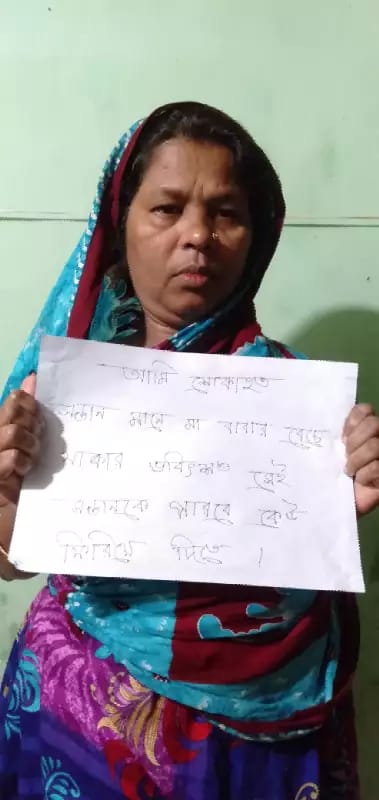 আমি শোকাহত
সন্তান মানে মা বাবার বেঁচে
থাকার ভবিষ্যৎ সেই
সন্তানকে পারবে কেউ
ফিরিয়ে দিতে ।